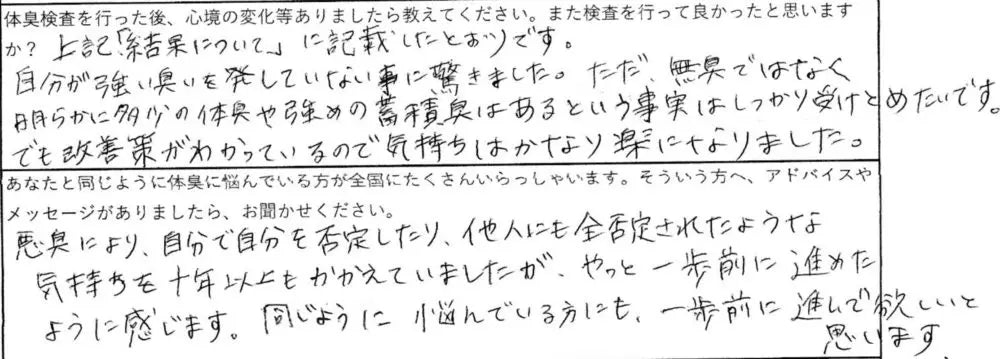 体臭検査を行った後、心境の変化等ありましたら教えてください。また検査を行って良かったと思います
か？ 上記「結果について」に記載したとおりです。
自分が強い臭いを発していない事に驚きました。ただ、無臭ではなく
明らかに多少の体臭や強めの蓄積臭はあるという事実はしっかり受けとめたいです。
でも改善策がわかっているので気持ちはかなり楽になりました。
あなたと同じように体臭に悩んでいる方が全国にたくさんいらっしゃいます。そういう方へ、アドバイスや
メッセージがありましたら、お聞かせください。
悪臭により、自分で自分を否定したり、他人にも全否定されたような
気持ちを十年以上もかかえていましたが、やっと一歩前に進めた
ように感じます。同じように悩んでいる方にも、一歩前に進んで欲しいと
思います。